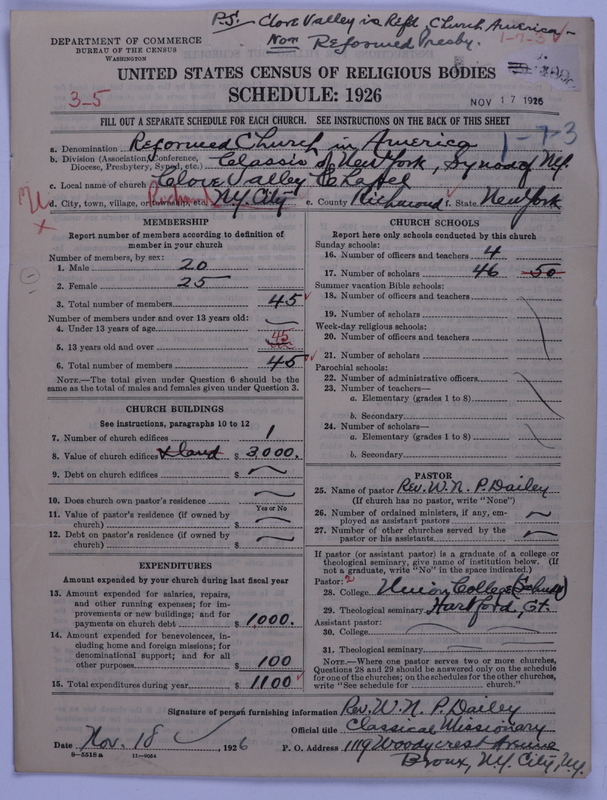 P.S. Clove Valley is Refd Church America -
Non Reformed Presby.
1-7-3
DEPARTMENT OF COMMERCE
BUREAU OF THE CENSUS
WASHINGTON
UNITED STATES CENSUS OF RELIGIOUS BODIES
SCHEDULE: 1926
3-5
NOV 17 1926
FILL OUT A SEPARATE SCHEDULE FOR EACH CHURCH. SEE INSTRUCTIONS ON THE BACK OF THIS SHEET
1-7-3
a. Denomination Reformed Church in America
b. Division (Association, Conference, Diocese, Presbytery, Synod, etc.) Classis of New York, Synod N.Y.
c. Local name of church Clove Valley Chapel
d. City, town, village, or township, etc. N.Y. City e. County Richmond f. State New York
MEMBERSHIP
Report number of members according to definition of
member in your church
Number of members, by sex:
1. Male 20
2. Female 25
3. Total number of members 45
Number of members under and over 13 years old:
4. Under 13 years of age
5. 13 years old and over 45
6. Total number of members 45
NOTE.—The total given under Question 6 should be
the same as the total of males and females given under Question 3.
CHURCH BUILDINGS
See instructions, paragraphs 10 to 12
7. Number of church edifices 1
8. Value of church edifices & land $ 3,000.
9. Debt on church edifices $
10. Does church own pastor's residence
Yes or No
11. Value of pastor's residence (if owned by
church) $
12. Debt on pastor's residence (if owned by
church) $
EXPENDITURES
Amount expended by your church during last fiscal year
13. Amount expended for salaries, repairs,
and other running expenses; for im-
provements or new buildings; and for
payments on church debt $ 1,000.
14. Amount expended for benevolences, in-
cluding home and foreign missions; for
denominational support; and for all
other purposes $ 100
15. Total expenditures during year $ 1100
CHURCH SCHOOLS
Report here only schools conducted by this church
Sunday schools:
16. Number of officers and teachers 4
17. Number of scholars 46 50
Summer vacation Bible schools:
18. Number of officers and teachers
19. Number of scholars
Week-day religious schools:
20. Number of officers and teachers
21. Number of scholars
Parochial schools:
22. Number of administrative officers
23. Number of teachers—
a. Elementary (grades 1 to 8)
b. Secondary
24. Number of scholars—
a. Elementary (grades 1 to 8)
b. Secondary
PASTOR
25. Name of pastor Rev. W. N. P. Dailey
(If church has no pastor, write "None")
26. Number of ordained ministers, if any, em-
ployed as assistant pastors
27. Number of other churches served by the
pastor or his assistants
If pastor (or assistant pastor) is a graduate of a college or
theological seminary, give name of institution below. (If
not a graduate, write "No" in the space indicated.)
Pastor: 2
28. College Union College
29. Theological seminary Hartford, Ct.
Assistant pastor:
30. College
31. Theological seminary
NOTE.—Where one pastor serves two or more churches,
Questions 28 and 29 should be answered only on the schedule
for one of the churches; on the schedules for the other churches,
write "See schedule for church."
Signature of person furnishing information Rev. W. N. P. Dailey
Official title Classical Missionary
Date Nov. 18, 1926 P. O. Address 1119 Woodycrest Avenue
8-5518a 11-9084
Bronx, N.Y. City, N.Y.